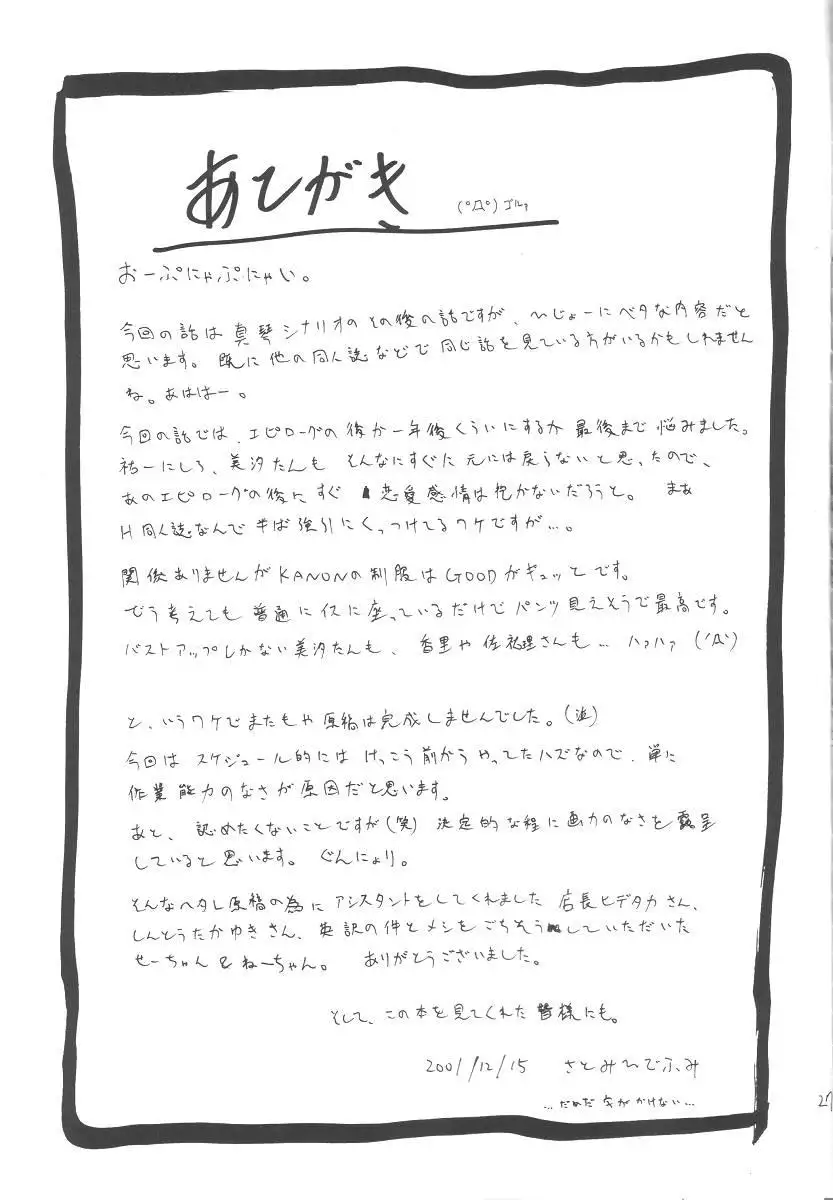 あとがき (°Д°)ゴルァ
おーぷにゃぷにゃい。
今回の話は真琴シナリオのその後の話ですが、ひじょーにベタな内容だと
思います。既に他の同人誌などで同じ話を見ている方がいるかもしれません
ね。あははー。
今回の話では、エピローグの後か一年後くらいにするか最後まで悩みました。
祐一にしろ、美汐たんも そんなにすぐに元には戻らないと思ったので、
あのエピローグの後にすぐ 恋愛感情は抱かないだろうと。 まぁ
H同人誌なんで半ば強引にくっつけてるワケですが…。
関係ありませんがKANONの制服はGOODがギュッとです。
どう考えても普通にイスに座っているだけでパンツ見えそうで最高です。
バストアップしかない美汐たんも、香里や佐祐理さんも… ハァハァ (´Д`)
と、いうワケでまたもや原稿は完成しませんでした。(泣)
今回は スケジュール的には けっこう前からやってたハズなので、単に
作業能力のなさが原因だと思います。
あと、認めたくないことですが(笑) 決定的な程に画力のなさを露呈
していると思います。ぐんにょり。
そんなヘタレ原稿の為にアシスタントをしてくれました 店長ヒデタカさん、
しんとうたかゆきさん、英訳の件とメシをごちそうしていただいた
せーちゃん&ねーちゃん。 ありがとうございました。
そして、この本を見てくれた皆様にも。
2001/12/15 さとみひでふみ
…だめだ 字がかけない…
27